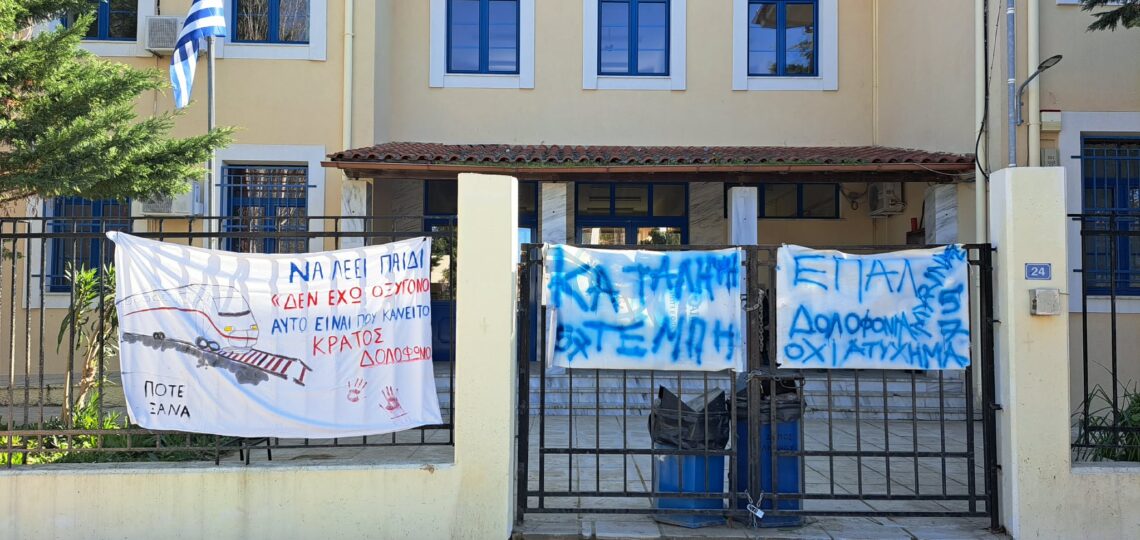 ΝΑ ΛΕΕΙ ΠΑΙΔΙ
«ΔΕΝ ΕΧΩ ΟΞΥΓΟΝΟ
ΑΥΤΟ ΕΙΝΑΙ ΠΟΥ ΚΑΝΕΙ ΤΟ
ΚΡΑΤΟΣ
ΔΟΛΟΦΟΝΟ
ΠΟΤΕ
ΞΑΝΑ
ΚΑΤΑΛΗΨΗ
ΤΕΜΠΗ
ΕΠΑΛ
ΔΟΛΟΦΟΝΙΑ
ΟΧΙ ΑΤΥΧΗΜΑ
24